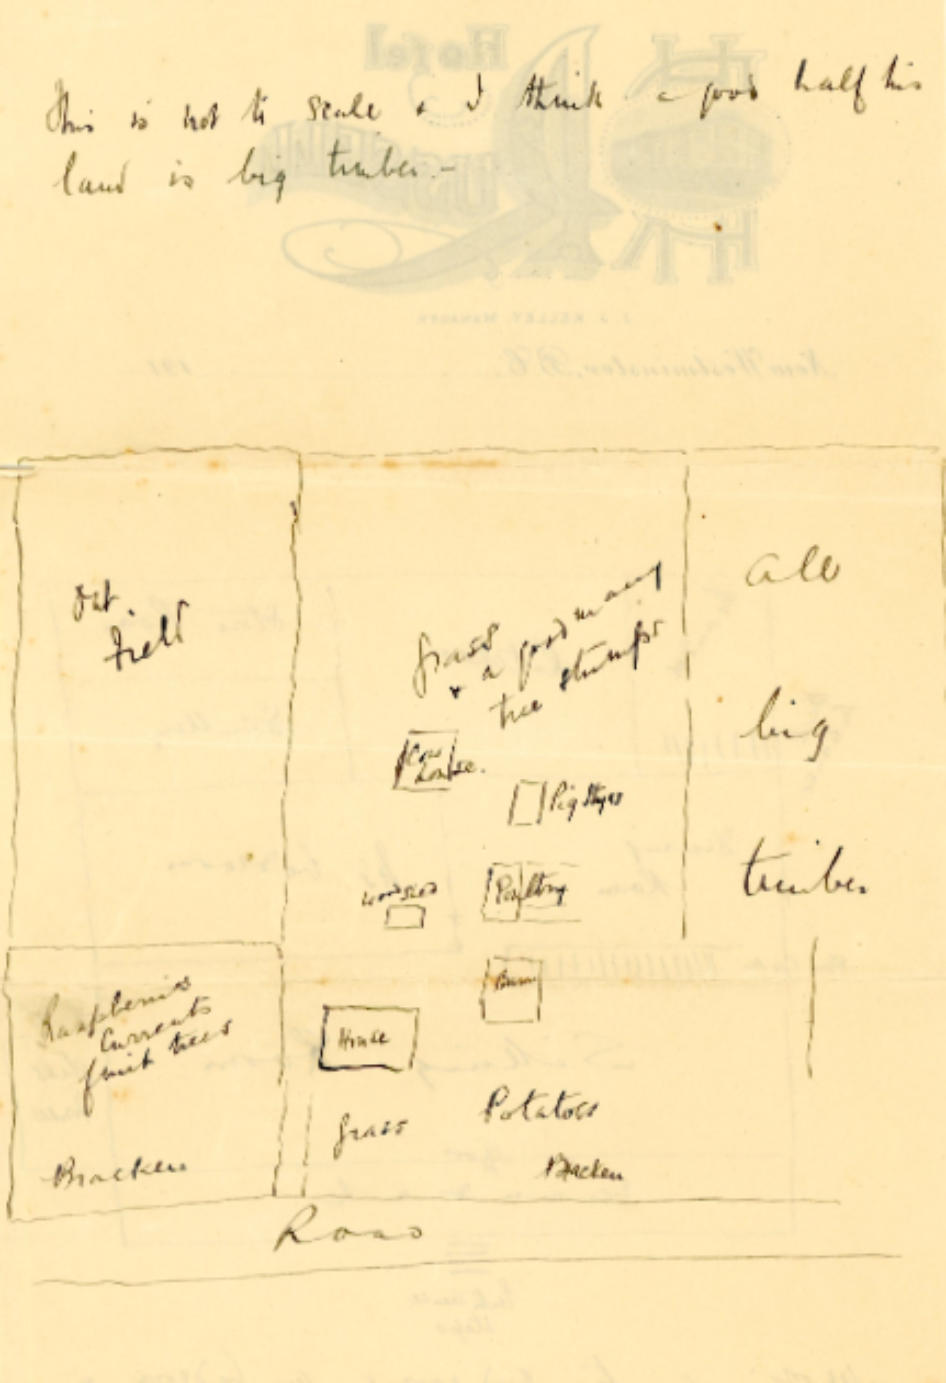 This is not to scale & I think a good half his
land is big timber.-
Hotel
J. J. KELLEY, MANAGER
New Westminster, B.C. 191
Oat
field
Grass
& a good many
tree stumps
All
big
timber
Cow
house.
Pig Styes
woodshed
Poultry
Barn
House
Raspberries
Currents
fruit trees
Bracken
Grass
Potatoes
Bracken
Road